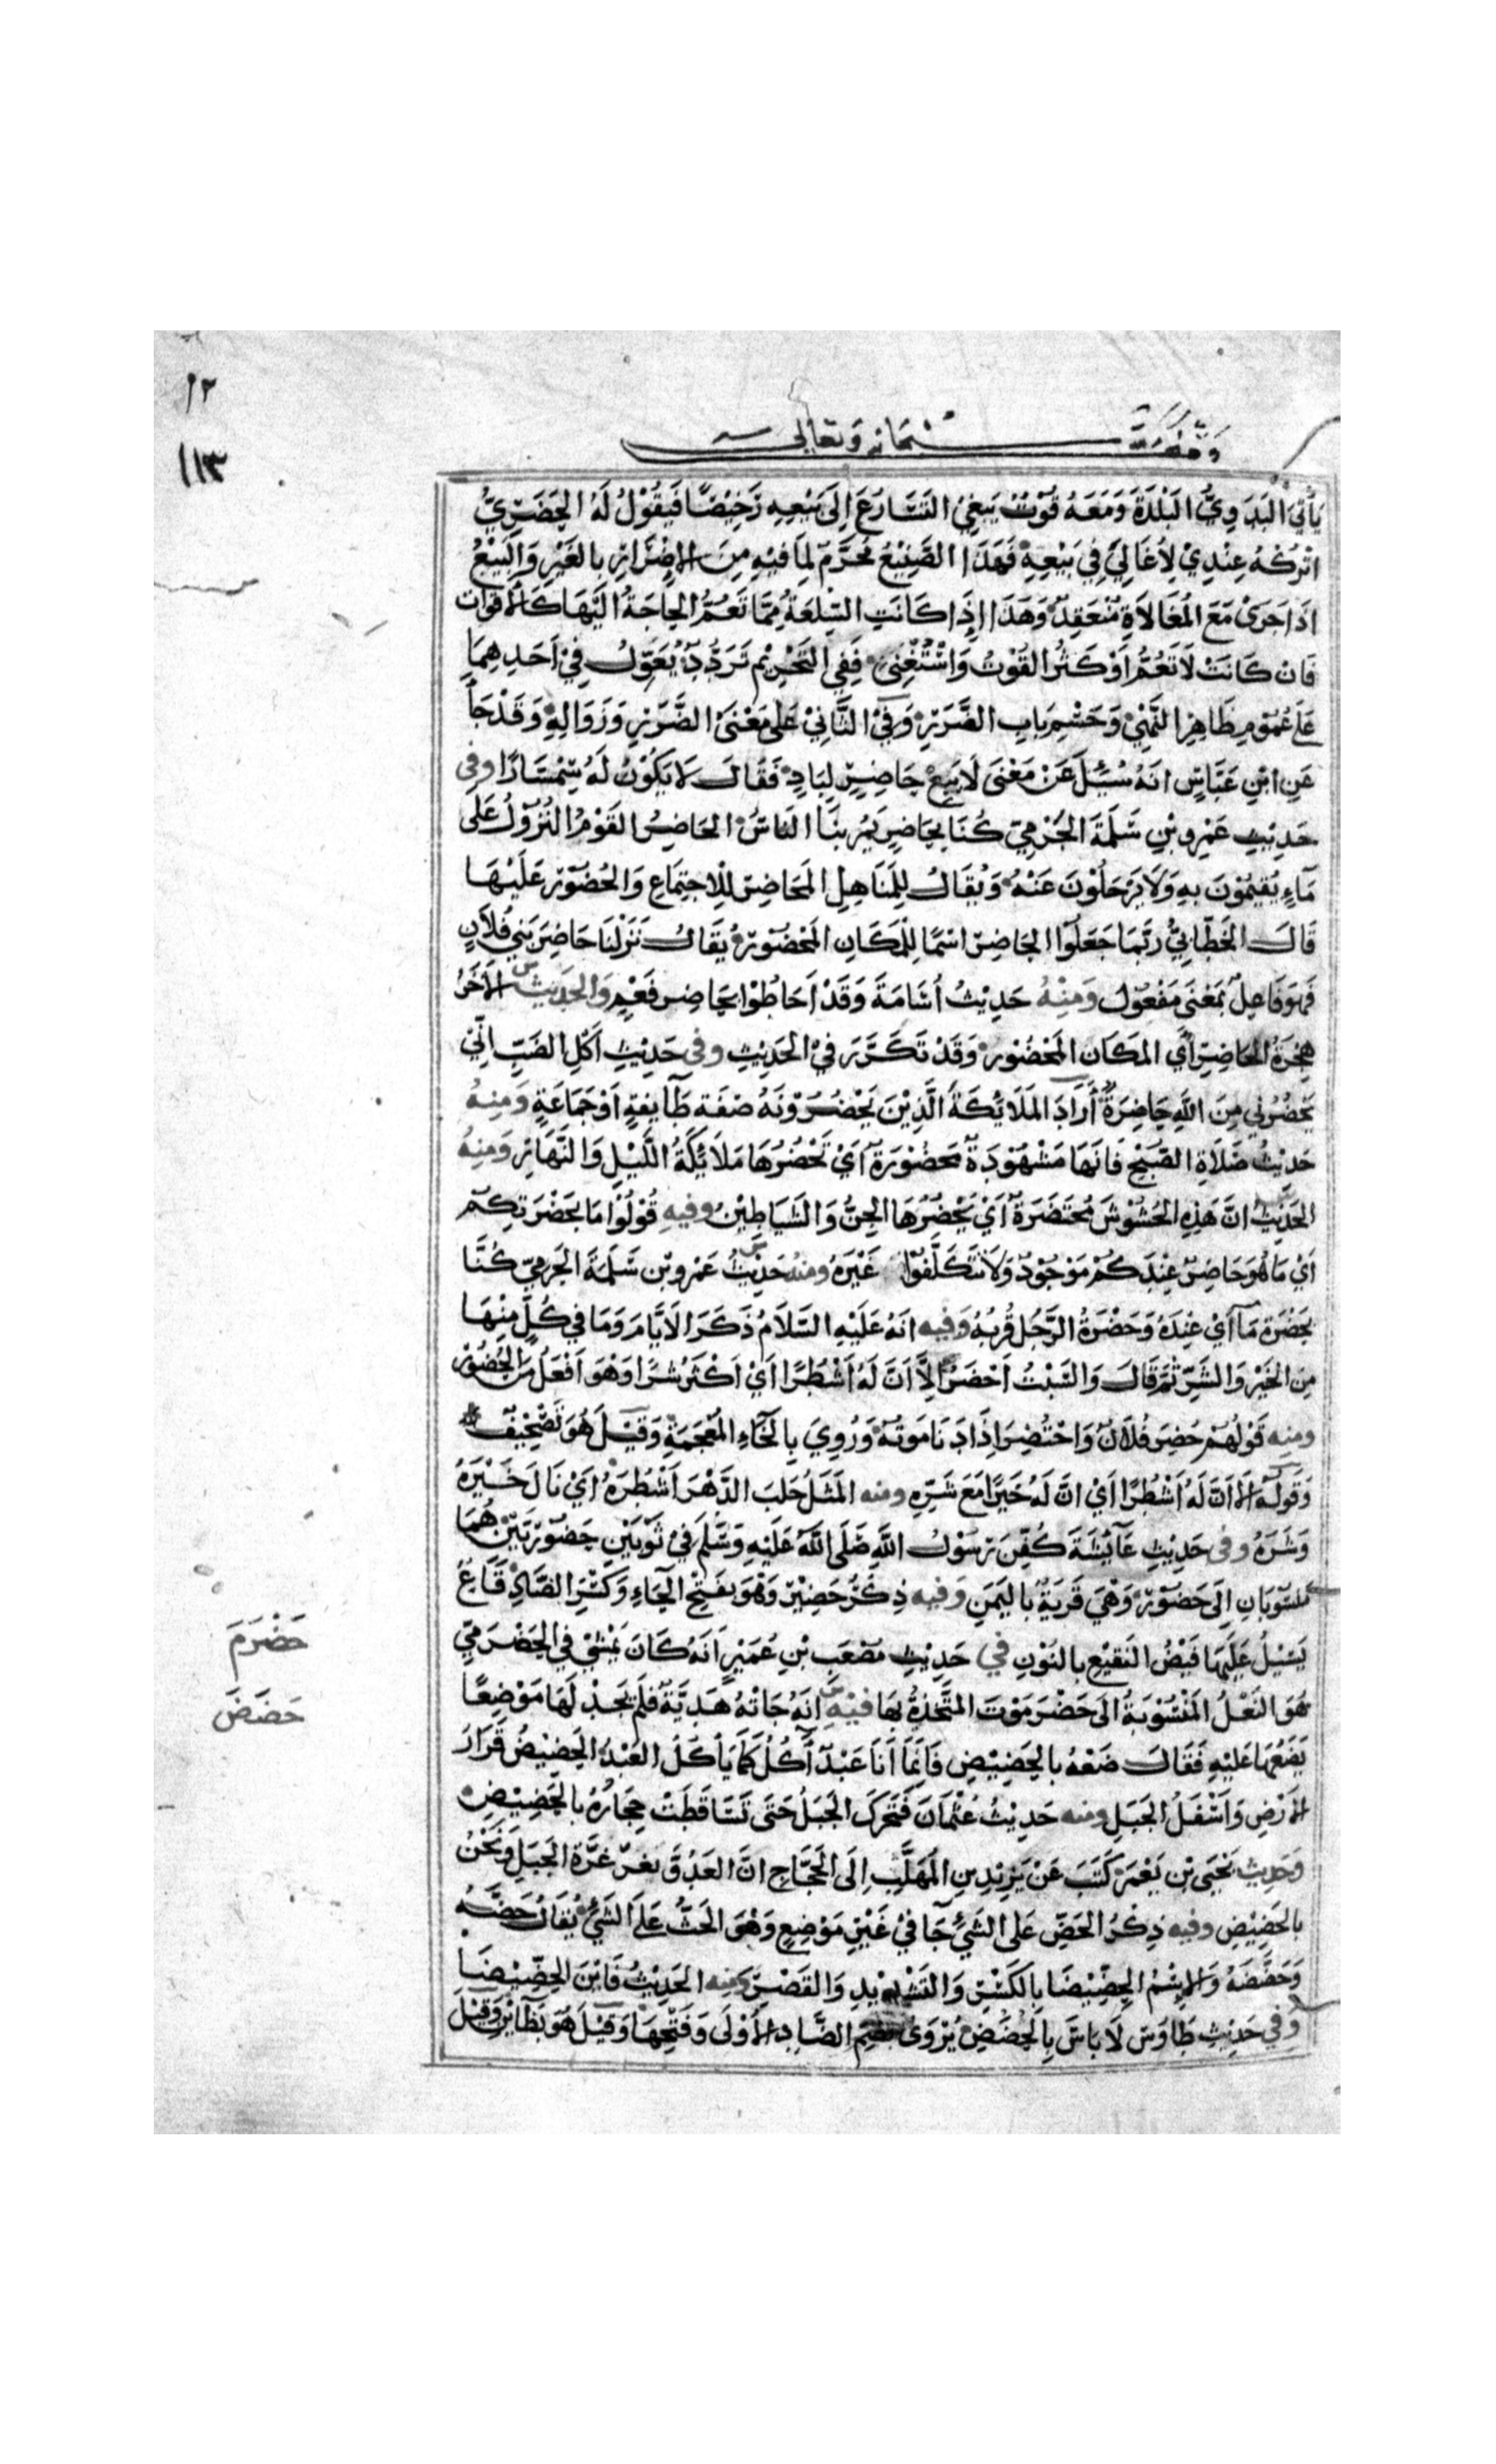 ١١٣
وقف لله سبحانه وتعالى
يَأْتِي البَدَوِيُّ البَلْدَةَ وَمَعَهُ قُوْتٌ يَبْغِي التَّسَارُعَ اِلَى بَيْعِهِ رَخِيْصًا فَيَقُوْلُ لَهُ الحَضَرِيُّ
اتْرُكْهُ عِنْدِيْ لِأُغَالِيَ فِي بَيْعِهِ فَهَذَا الصَّنِيْعُ مُحَرَّمٌ لِمَا فِيْهِ مِنَ الاِضْرَارِ بِالغَيْرِ وَالبَيْعُ
اِذَا جَرَى مَعَ المُغَالَاةِ مُنْعَقِدٌ وَهَذَا اِذَا كَانَتِ السِّلْعَةُ مِمَّا تَعُمُّ الحَاجَةُ اِلَيْهَا كَالاَقْوَاتِ
فَاِنْ كَانَتْ لَا تَعُمُّ اَوْ كَثُرَ القُوْتُ وَاسْتُغْنِىَ فَفِي التَّحْرِيْمِ تَرَدُّدٌ يُعَوِّلُ فِيْ اَحَدِهِمَا
عَلَى عُمُوْمِ ظَاهِرِ النَّهْيِ وَحَسْمِ بَابِ الضَّرَرِ وَفِي الثَّانِيْ عَلَى مَعْنَى الضَّرَرِ وَزَوَالِهِ وَقَدْ جَآءَ
عَنِ ابْنِ عَبَّاسٍ اَنَّهُ سُئِلَ عَنْ مَعْنَى لَا يَبِعْ حَاضِرٌ لِبَادٍ فَقَالَ لَا يَكُوْنُ لَهُ سِمْسَارًا وفى
حَدِيْثِ عَمْرِو بْنِ سَلِمَةَ الجَرْمِيِّ كُنَّا بِحَاضِرٍ يَمُرُّ بِنَا النَّاسُ الحَاضِرُ القَوْمُ النُّزُوْلُ عَلَى
مَآءٍ يُقِيْمُوْنَ بِهِ وَلَا يَرْحَلُوْنَ عَنْهُ وَيُقَالُ لِلْمَنَاهِلِ المَحَاضِرُ لِلاِجْتِمَاعِ وَالحُضُوْرِ عَلَيْهَا
قَالَ الخَطَّابِيُّ رُبَّمَا جَعَلُوا الحَاضِرَ اسْمًا لِلْمَكَانِ المَحْضُوْرِ يُقَالُ نَزَلْنَا حَاضِرَ بَنِي فُلَانٍ
فَهُوَ فَاعِلٌ بِمَعْنَى مَفْعُوْلٍ وَمِنْهُ حَدِيْثُ اُسَامَةَ وَقَدْ اَحَاطُوْا بِحَاضِرٍ فَعْمٍ وَالحَدِيْثُ الاَخَرُ
هِجْرَةُ الحَاضِرِ أَيِ المَكَانِ المَحْضُوْرِ وَقَدْ تَكَرَّرَ فِي الحَدِيْثِ وفى حَدِيْثِ اَكْلِ الضَّبِّ اِنِّيْ
تَحْضُرُنِي مِنَ اللَّهِ حَاضِرَةٌ أَرَادَ المَلَائِكَةَ الَّذِيْنَ يَحْضُرُوْنَهُ صفَة طَآئِفةٍ اَوْ جَمَاعَةٍ وَمِنْهُ
حَدِيْثُ صَلَاةِ الصُّبْحِ فَاِنَّهَا مَشْهُوْدَةٌ مَحْضُوْرَةٌ اَيْ تَحْضُرُهَا مَلَائِكَةُ اللَّيْلِ وَالنَّهَارِ وَمِنْهُ
الحَدِيْثُ اِنَّ هَذِهِ الحُشُوْشَ مُحْتَضَرَةٌ اَيْ يَحْضُرُهَا الجِنُّ وَالشَّيَاطِيْنُ وفيهِ قُوْلُوْا مَا بِحَضْرَتِكُمْ
اَيْ مَا هُوَ حَاضِرٌ عِنْدَكُمْ مَوْجُوْدٌ وَلَا تَتَكَلَّفُوْا غَيْرَهُ ومنهُ حَدِيْثُ عَمْرِو بْنِ سَلِمَةَ الجَرْمِيِّ كُنَّا
بِحَضْرَةِ مَآءٍ اَيْ عِنْدَهُ وَحَضْرَةُ الرَّجُلِ قُرْبُهُ وَفيه اَنَّهُ عَلَيْهِ السَّلَامُ ذَكَرَ الاَيَّامَ وَمَا فِي كُلٍّ مِنْهَا
مِنَ الخَيْرِ وَالشَّرِّ ثُمَّ قَالَ وَالسَّبْتُ اَحْضَرُ اِلَّا اَنَّ لَهُ اَشْطُرًا اَيْ اَكْثَرُ شَرًّا وَهُوَ اَفْعَلُ مِنَ الحُضُوْرِ
ومنه قَوْلُهُمْ حُضِرَ فُلَانٌ وَاحْتُضِرَ اِذَا دَنَا مَوْتُهُ وَرُوِيَ بِالخَآءِ المُعْجَمَةِ وَقِيْلَ هُوَ تَصْحِيْفٌ
وَقَوْلُهُ اِلاَّ اَنَّ لَهُ اَشْطُرًا اَيْ اِنَّ لَهُ خَيْرًا مَعَ شَرِّهِ ومنه المَثَلُ حَلَبَ الدَّهْرَ اَشْطُرَهُ اَيْ نَالَ خَيْرَهُ
وَشَرَّهُ وفى حَدِيْثِ عَآئِشَةَ كُفِّنَ رَسُوْلُ اللَّهِ صَلَّى اللَّهُ عَلَيْهِ وَسَلَّمَ فِيْ ثَوْبَيْنِ حَضُوْرِيَّيْنِ هُمَا
مَنْسُوْبَانِ اِلَى حَضُوْرٍ وَهْيَ قَرْيَةٌ بِاليَمَنِ وَفيه ذِكْرُ حَضِيْرٍ وَهُوَ بِفَتْحِ الحَاءِ وَكَسْرِ الضَّادِ قَاعٌ
يَسِيْلُ عَلَيْهَا فَيْضُ النَّقِيْعِ بِالنُّوْنِ في حَدِيْثِ مُصْعَبِ بْنِ عُمَيْرٍ اَنَّهُ كَانَ يَمْشِيْ فِي الحَضْرَمِيِّ
حَضْرَمَ
هُوَ النَّعْلُ المَنْسُوْبَةُ اِلَى حَضْرَمَوْتَ المُتَّخَذَةُ بِهَا فيْهِ اَنَّهُ جَاءَتْهُ هَدِيَّةٌ فَلَمْ يَجِدْ لَهَا مَوْضِعًا
حَضَضَ
يَضَعُهَا عَلَيْهِ فَقَالَ ضَعْهُ بِالحَضِيْضِ فَاِنَّمَا اَنَا عَبْدٌ آكُلُ كَمَا يَأكُلُ العَبْدُ الحَضِيْضُ قَرَارُ
الاَرْضِ وَاَسْفَلُ الجَبَلِ ومنه حَدِيْثُ عُثْمَانَ فَتَحَرَّكَ الجَبَلُ حَتَّى تَسَاقَطَتْ حِجَارَتُهُ بِالحَضِيْضِ
وَحَدِيْث يَحْيَى بْنِ يَعْمَرَ كَتَبَ عَنْ يَزِيْدِ بنِ المُهَلَّبِ اِلَى الحَجَّاجِ اِنَّ العَدُوَّ بعُرْعُرَةِ الجَبَلِ وَنَحْنُ
بِالحَضِيْضِ وفيه ذِكْرُ الحَضِّ عَلَى الشَّيْءِ جَآءَ فِيْ غَيْرِ مَوْضِعٍ وَهُوَ الحَثُّ عَلَى الشَّيْءِ يُقَالُ حَضَّهُ
وَحَضَّضَهُ وَالاِسْمُ الحِضِّيْضَا بِالكَسْرِ وَالتَّشْدِيْدِ وَالقَصْرِ ومنه الحَدِيْثُ فَاَيْنَ الحِضِّيْضَا
وَفِي حَدِيْثِ طَاوُسٍ لَا بَاسَ بِالحُضَضِ يُرْوَى بِضَمِّ الضَّادِ الاُوْلَى وَفَتْحِهَا وَقِيْلَ هُوَ بِظَاءَيْنِ وَقِيْلَ